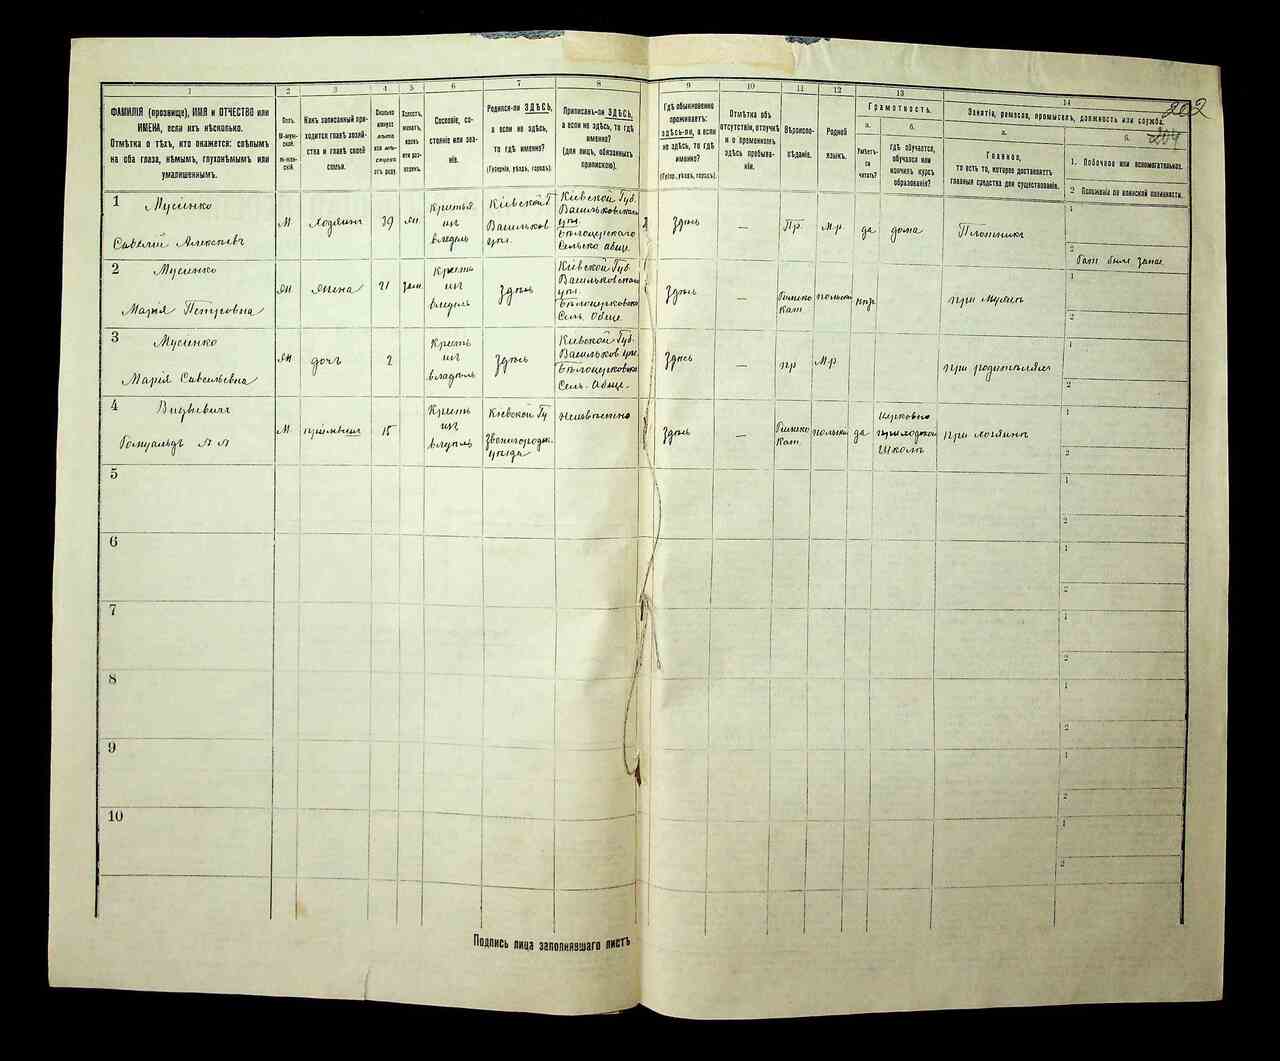 202
204
1
2
3
4
5
6
7
8
9
10
11
12
13
14
ФАМИЛІЯ (прозвище), ИМЯ и ОТЧЕСТВО или
ИМЕНА, если ихъ нѣсколько.
Отмѣтка о тѣхъ, кто окажется: слѣпымъ
на оба глаза, нѣмымъ, глухонѣмымъ или
умалишеннымъ.
Полъ.
М-муж-
ской.
Ж-жен-
скій.
Какъ записанный при-
ходится главѣ хозяй-
ства и главѣ своей
семьи.
Сколько
минуло
лѣтъ
или мѣ-
сяцевъ
отъ роду.
Холостъ,
женатъ,
вдовъ
или раз-
веденъ.
Сословіе, со-
стояніе или зва-
ніе.
Родился-ли ЗДѢСЬ,
а если не здѣсь,
то гдѣ именно?
(Губернія, уѣздъ, городъ).
Приписанъ-ли ЗДѢСЬ,
а если не здѣсь, то гдѣ
именно?
(для лицъ, обязанныхъ
припискою).
Гдѣ обыкновенно
проживаетъ:
здѣсь-ли, а если
не здѣсь, то гдѣ
именно?
(Губер., уѣздъ, городъ).
Отмѣтка объ
отсутствіи, отлучкѣ
и о временномъ
здѣсь пребыва-
ніи.
Вѣроиспо-
вѣданіе.
Родной
языкъ.
Грамотность.
а.
Умѣетъ-
ли
читать?
б.
гдѣ обучается,
обучался или
кончилъ курсъ
образованія?
Занятіе, ремесло, промыселъ, должность или служба.
а.
Главное,
то есть то, которое доставляетъ
главныя средства для существованія.
б.
1. Побочное или вспомогательное.
2 Положеніе по воинской повинности.
1
Мусіенко
Савелій Алексѣевъ
М
хозяинъ
39
жен.
Крестья
инъ
владѣль
Кіевской Г
Васильков
уѣз.
Кіевской Губ.
Васильковскаго
уѣз.
Бѣлоцерковскаго
Сельско общ.
Здѣсь
—
Пр
Мр
да
дома
Плотникъ
1
2
2
Мусіенко
Марія Петровна
Ж
жена
21
зам.
Крест
ин
владѣль
Здѣсь
Кіевской Губ.
Васильковскаго
уѣз.
Бѣлоцерковско
Сель. Обще.
Здѣсь
—
Римско
Кат
польск
нѣт
при мужѣ
1
2
3
Мусіенко
Марія Савельевна
Ж
дочь
2
Крест
ин
владѣль
Здѣсь
Кіевской Губ.
Васильков уѣз.
Бѣлоцерковско
Сель. Обще.
Здѣсь
пр
Мр
при родителях
1
2
4
Ромуальдъ
М
15
Крест
ин
владѣль
Кіевской Гу
Звенигородск
уѣзда
Неизвѣстно
Здѣсь
—
Римско
Кат.
польски
да
церковно
приходской
школѣ
при хозяинѣ
1
2
5
1
2
6
1
2
7
1
2
8
1
2
9
1
2
10
1
2
Подпись лица заполнявшаго листъ